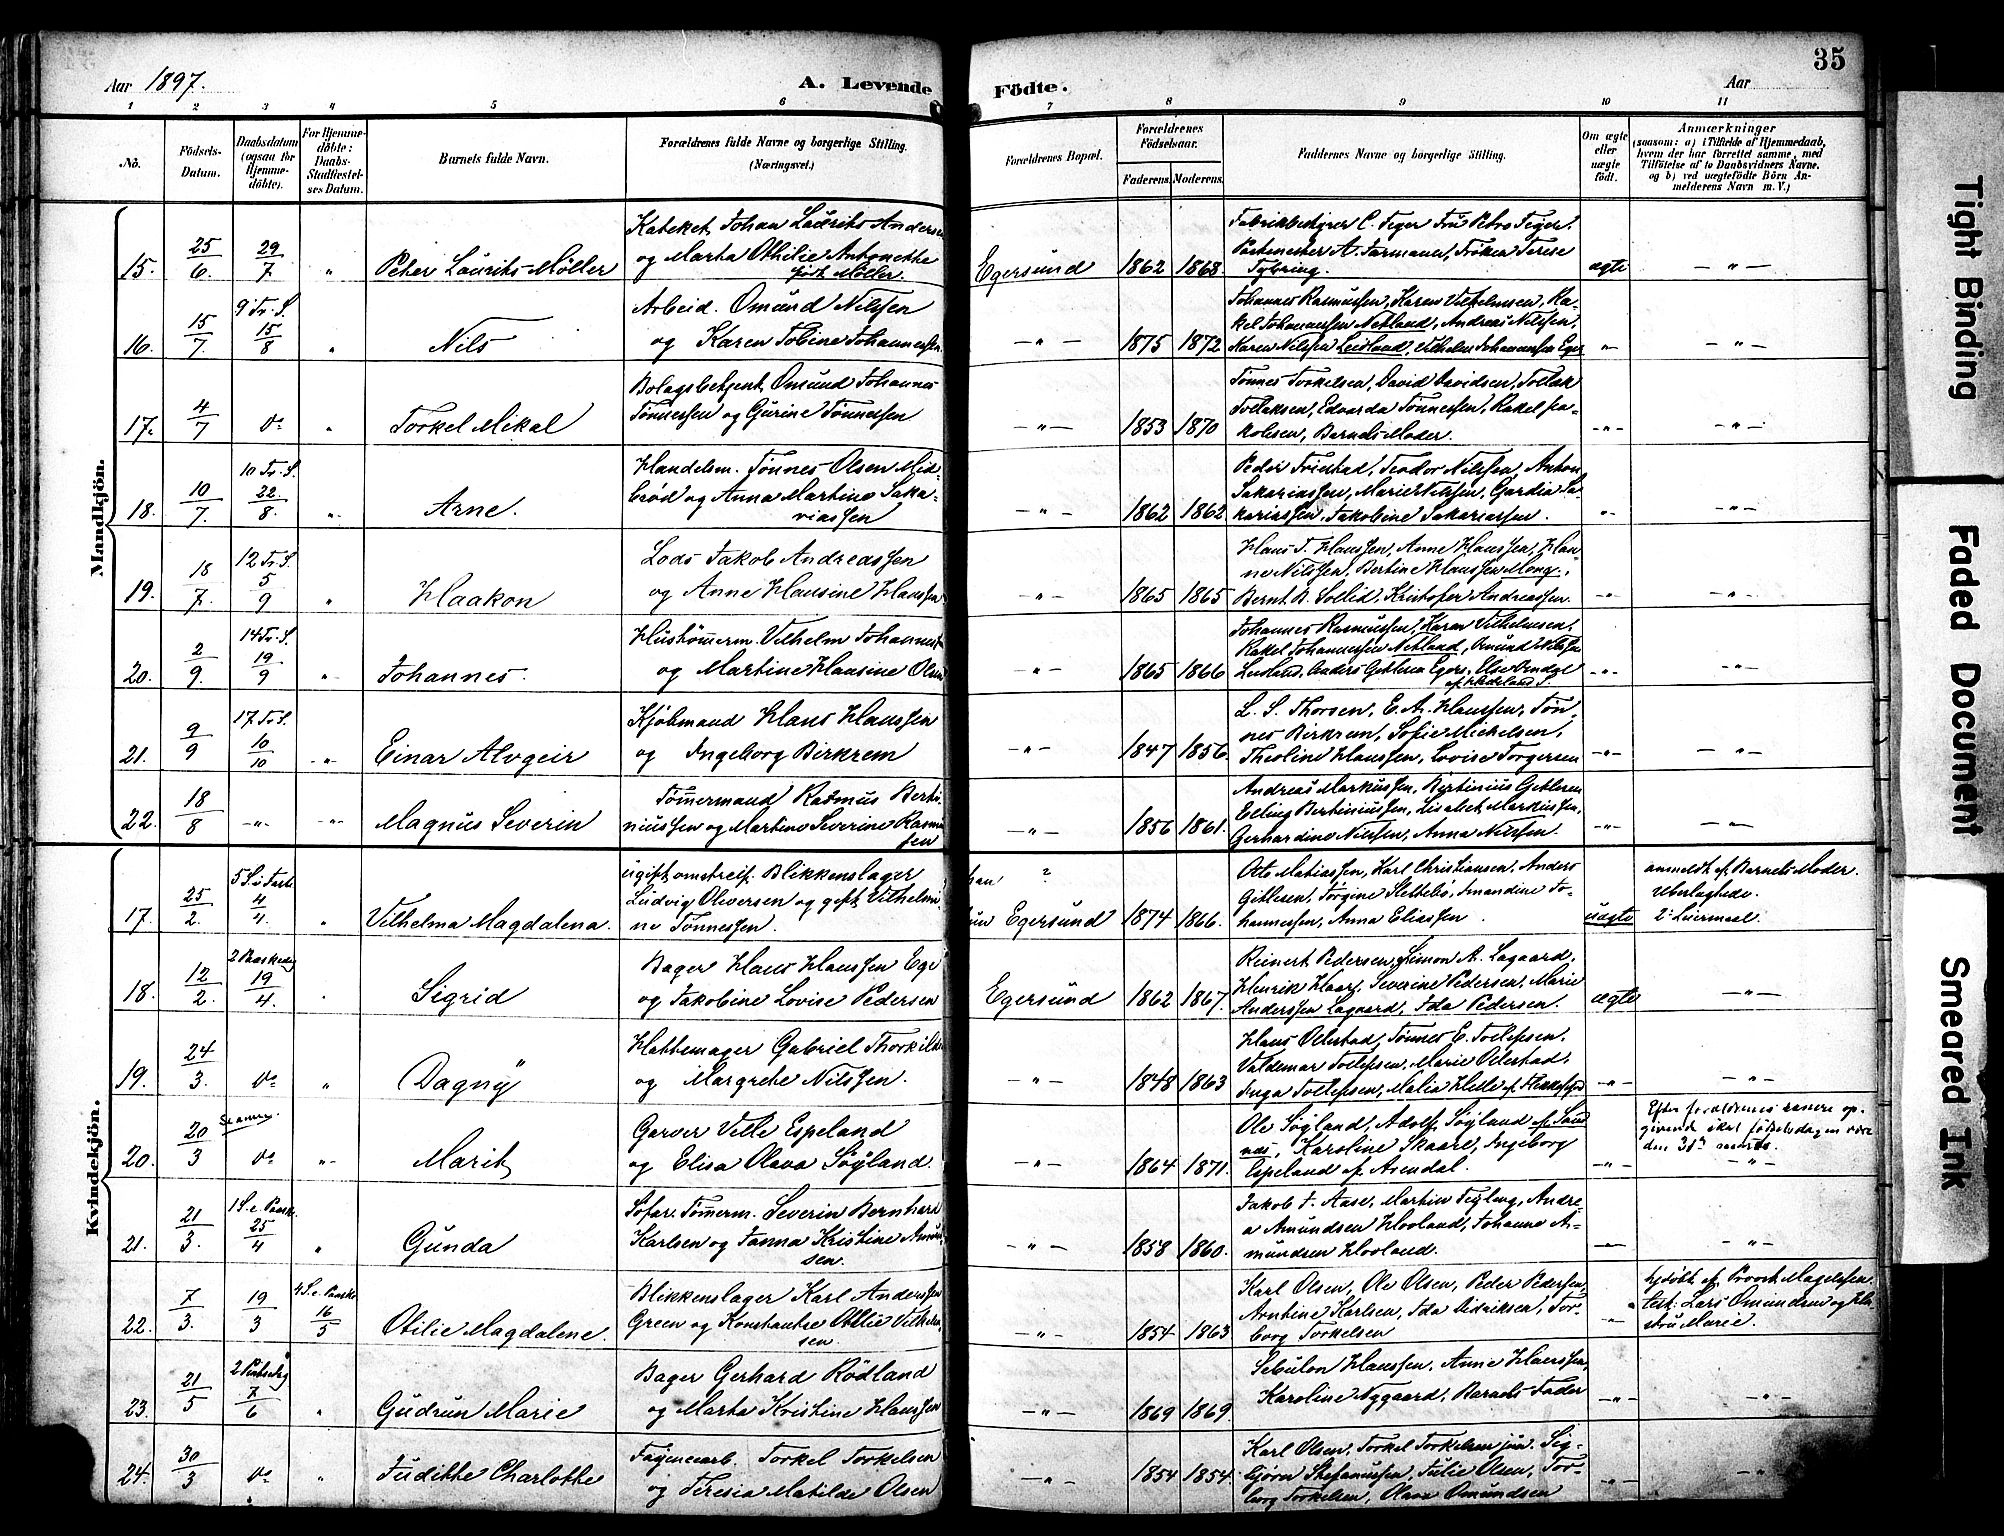 35
Aar 1897.
A. Levende Födte.
Aar
1 2 3 4 5 6 7 8 9 10 11
No.
Födsels-Datum.
Daabsdatum (ogsaa for Hjemmedöbte).
For Hjemmedöbte: Daabs-Stadfæstelses Datum.
Barnets fulde Navn.
Forældrenes fulde Navne og borgerlige Stilling. (Næringsvei.)
Forældrenes Bopæl.
Forældrenes Födselsaar.
Faderens. Moderens.
Faddernes Navne og borgerlige Stilling.
Om ægte eller uægte födt.
Anmærkninger
(saasom: a) i Tilfælde af Hjemmedaab, hvem der har forrettet samme, med Tilföielse af to Daabsvidners Navne. og b) ved uægtefödte Börn Anmelderens Navn m. V.)
Mandkjön.
15. 25/6. 29/7 " Peter Laurits Möller
Kateket Johan Laurits Andersen
og Marta Othilie Antonette
född Möller.
Egersund 1862 1868
Fabrikbestyrer C. Feyer Fru Petra Feyer,
Postmester A. Farmand, Fröken Terese
Tybring.
ægte — " —
16. 15/7. 9 Tr. S. 15/8 " Nils
Arbeid. Omund Nilssen
og Karen Tobine Johannessen
— " — 1875 1872
Johannes Rasmussen, Karen Vilhelmsen, Rakel Johannessen Netland, Andreas Nilssen,
Karen Nilssen Leidland, Vilhelm Johannessen Eger
" — " —
17. 4/7 do " Torkel Mikal
Bolagsbetjent Omund Johannes
Tönnessen og Gurine Tönnessen
— " — 1853 1870
Tönnes Torkelsen, David Davidsen, Tollak
Tollaksen, Edvarda Tönnessen, Rakel Jakobsen, Barnets Moder.
— " — — " —
18. 10/7. 10 Tr. S. 22./8. " Arne.
Handelsm. Tönnes Olsen Midbröd og Anna Martine Sakariassen
— " — 1862 1862
Peder Friestad, Teodor Nilssen, Anton
Sakariassen, Marie Nilssen, Gardia Sakariassen, Jakobine Sakariassen.
" — " —
19. 18/7. 12 Tr. S. 5/9 " Haakon
Lods Jakob Andreassen
og Anne Hansine Hanssen
— " — 1865 1865
Hans T. Hanssen, Anne Hanssen, Hanne Nilssen, Bertine Hanssen Mong,
Bernt B. Sollid, Kristofer Andreassen.
— " — — " —
20. 2/9. 14 Tr. S. 19/9 " Johannes.
Hushömmerm. Vilhelm Johannessen
og Martine Hansine Olsen
— " — 1865 1866
Johannes Rasmussen, Karen Vilhelmsen,
Rakel Johannessen Netland, Omund Nilssen
Leidland, Anders Gitlesen Egers., Olse Omdal
af Hedeland S.
— " — — " —
21. 9/9 17 Tr. S. 10/10 — " — Einar Alvgeir
Kjöbmand Hans Hanssen
og Ingeborg Birkrem
— " — 1847 1856
L. S. Thorsen, E. A. Hanssen, Tönnes Birkrem, Sofie Mickelsen,
Theoline Hanssen, Lovise Torgersen
— " — — " —
22. 18/8 — " — — " — Magnus Severin
Tömmermand Rasmus Bertiniussen og Martine Severine Rasmussen
— " — 1856 1861.
Andreas Markussen, Bertinius Gitlesen
Elling Bertiniussen, Lisabet Markussen,
Gerhardine Nilssen, Anna Nilssen.
— " — — " —
Kvindekjön.
17. 25/2. 5 S. i Faste 4/4. " Vilhelma Magdalena.
ugift omstreif. Blikkenslager
Ludvig Oliversen og gift Vilhelmine Tönnessen.
han ?
hun Egersund 1874 1866.
Otto Matiassen, Karl Christiansen, Anders
Gitlesen, Jörgine Slettebö, Amandine Johannessen, Anna Eliassen.
uægte
anmeldt af Barnets Moder.
2' Leiermaal
18. 12/2. 2 Paaskedag 19/4. " Sigrid
Bager Hans Hanssen Ege
og Jakobine Lovise Pedersen
Egersund 1862 1867.
Reinert Pedersen, Simon A. Lagaard,
Henrik Haar, Severine Pedersen, Marie
Anderssen Lagaard, Ida Pedersen.
ægte — " —
19. 24/3. do " Dagny
Hattemager Gabriel Thorkildsen
og Margrete Nilssen.
— " — 1848 1863
Hans Ollestad, Tönnes E. Tollefsen,
Valdemar Tollefsen, Marie Ollestad,
Inga Tollefsen, Malia Helle af Flekkefjord
— " — — " —
20. 20/3 do — " — Marit
Garver Ville Espeland
og Elisa Olava Söyland.
— " — 1864 1871.
Ole Söyland, Adolf Söyland af Sandnes, Karoline Skaarl, Ingeborg
Espeland af Arendal.
— " —
Efter forældrenes senere opgivende skal födselsdagen være
den 31te marts.
— " —
21. 21/3. 1 S. e. Paask. 25/4 " Gunda
Söfar. Tömerm. Severin Bernhard
Karlsen og Janna Kristine Amundsen.
— " — 1858 1860.
Jakob J. Aase, Martin Tengberg, Andrea Amundsen Hovland, Johanna Amundsen Hovland.
— — " —
22. 7/3. 19/3 4 S. e. Paaske 16/5 Otilie Magdalene.
Blikkenslager Karl Anderssen
Green og Konstantse Otilie Vilhelmsen.
— " — 1854 1863
Karl Olsen, Ole Olsen, Peder Pedersen,
Arntine Karlsen, Ida Didriksen, Torborg Torkelsen
— " —
hjdöbt af Provst Magelssen
test: Lars Omundsen og Hustru Marie.
23. 21/5 2 Pintsedag 7/6 " Gudrun Marie
Bager Gerhard Rödland
og Marta Kristine Hanssen
— " — 1869 1869.
Sebulon Hanssen, Anne Hanssen,
Karoline Nygaard, Barnets Fader
— " — — " —
24. 30/3 do " Juditte Charlotte
Fajencearb. Torkel Torkelsen
og Teresia Matilde Olsen
— " — 1854 1854.
Karl Olsen, Torkel Torkelsen jun. Sigbjörn Stefanussen, Julie Olsen, Torborg Torkelsen, Olava Omundsen
— " — — " —
Tight Binding
Faded Document
Smeared Ink